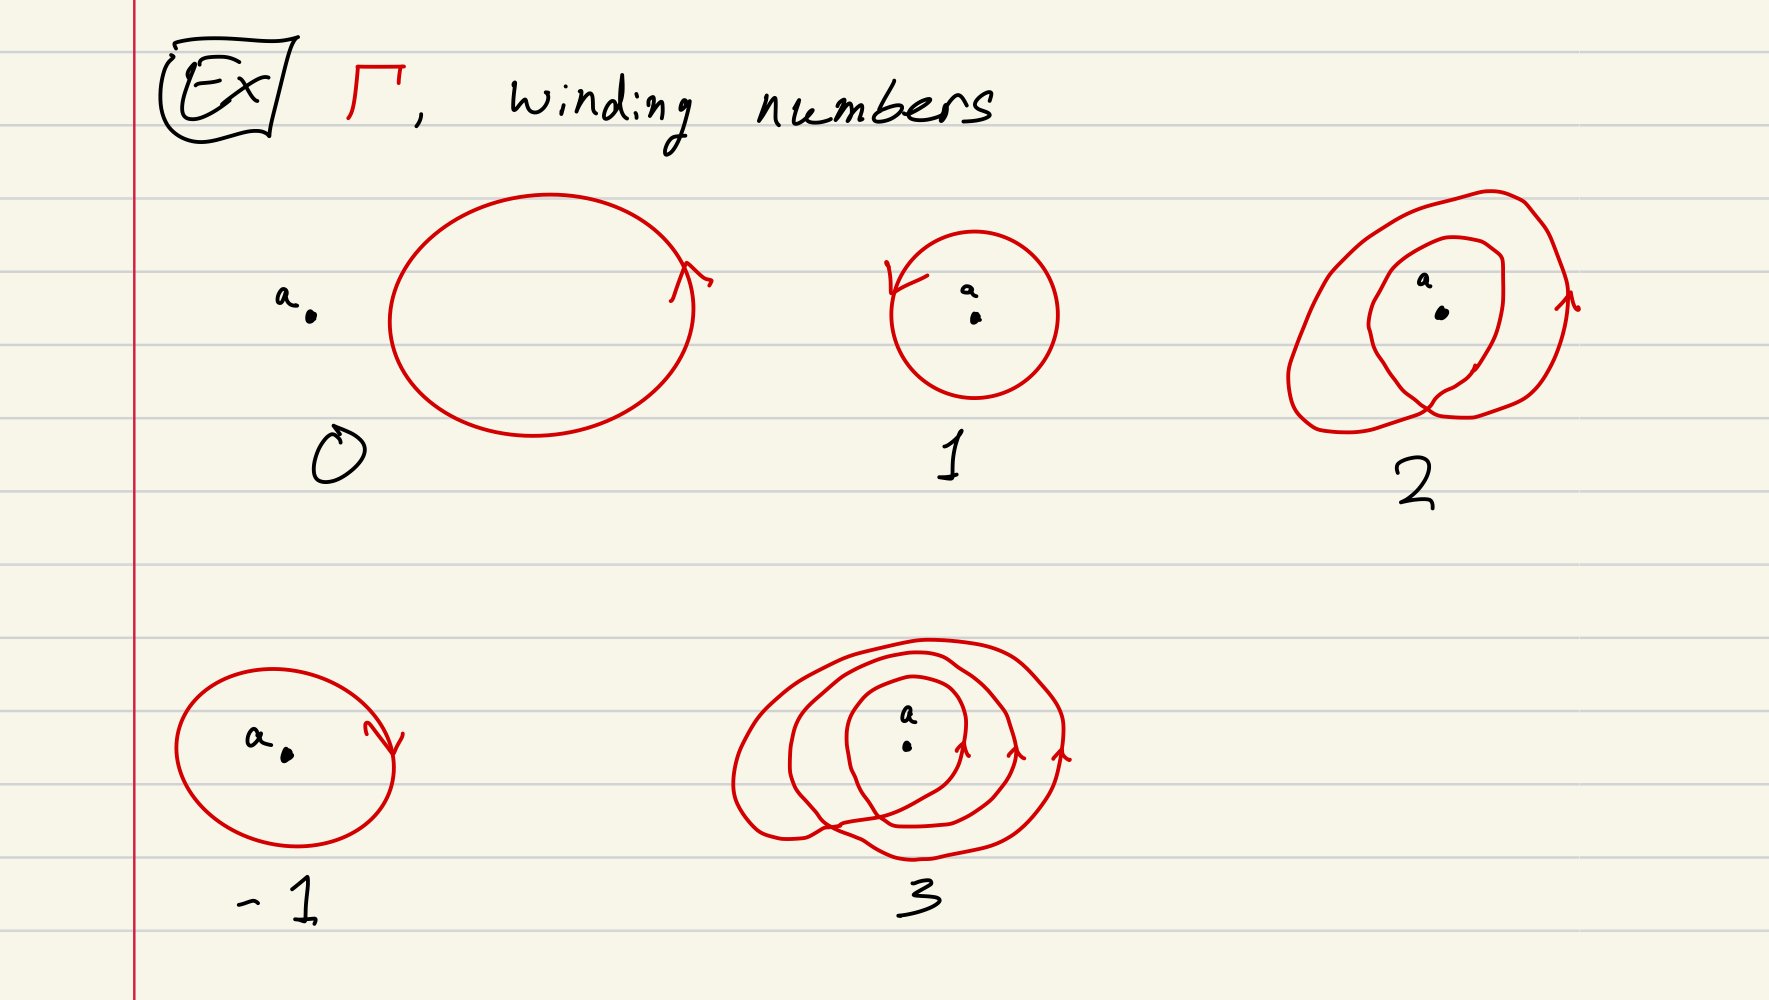 Ex Γ, winding numbers
a a a
0 1 2
a a
-1 3